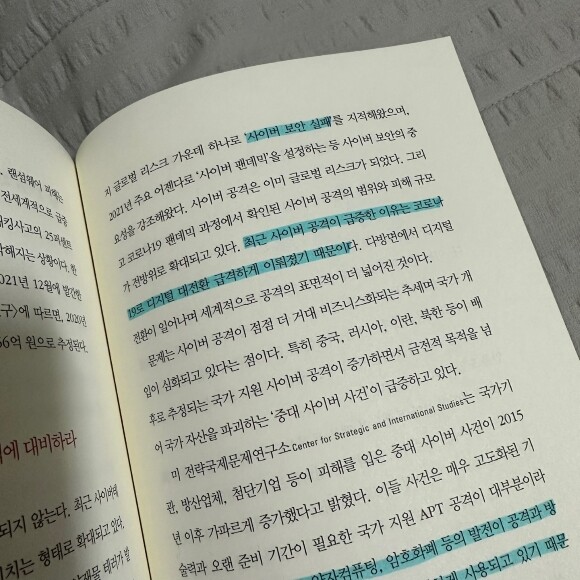 랜섬웨어 피해는
전세계적으로 급증
해킹사고의 25퍼센트
막해지는 상황이다. 한
2021년 12월에 발간한
구>에 따르면, 2020년
66억 원으로 추정된다.
에 대비하라
되지 않는다. 최근 사이버
치는 형태로 확대되고 있다.
테러가 발
지 글로벌 리스크 가운데 하나로 '사이버 보안 실패'를 지적해왔으며,
2021년 주요 어젠다로 '사이버 팬데믹'을 설정하는 등 사이버 보안의 중
요성을 강조해왔다. 사이버 공격은 이미 글로벌 리스크가 되었다. 그리
고 코로나19 팬데믹 과정에서 확인된 사이버 공격의 범위와 피해 규모
가 전방위로 확대되고 있다. 최근 사이버 공격이 급증한 이유는 코로나
19로 디지털 대전환 급격하게 이뤄졌기 때문이다. 다방면에서 디지털
전환이 일어나며 세계적으로 공격의 표면적이 더 넓어진 것이다.
문제는 사이버 공격이 점점 더 거대 비즈니스화되는 추세며 국가 개
입이 심화되고 있다는 점이다. 특히 중국, 러시아, 이란, 북한 등이 배
후로 추정되는 국가 지원 사이버 공격이 증가하면서 금전적 목적을 넘
어 국가 자산을 파괴하는 '중대 사이버 사건'이 급증하고 있다.
미 전략국제문제연구소Center for Strategic and International Studies는 국가기
관, 방산업체, 첨단기업 등이 피해를 입은 중대 사이버 사건이 2015
년 이후 가파르게 증가했다고 밝혔다. 이들 사건은 매우 고도화된 기
술력과 오랜 준비 기간이 필요한 국가 지원 APT 공격이 대부분이라
양자컴퓨팅, 암호화폐 등의 발전이 공격과 방
사용되고 있기 때문